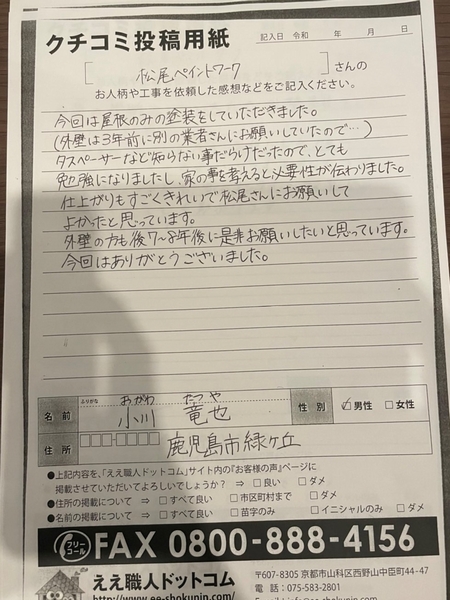 クチコミ投稿用紙
記入日 令和 年 月 日
[ 松尾ペイントワーク ] さんの
お人柄や工事を依頼した感想などをご記入ください。
今回は屋根のみの塗装をしていただきました。
(外壁は3年前に別の業者さんにお願いしていたので…)
タスペーサーなど知らない事だらけだったので、とても
勉強になりましたし、家の事を考えると必要性が伝わりました。
仕上がりもすごくきれいで松尾さんにお願いして
よかったと思っています。
外壁の方も後7〜8年後に是非お願いしたいと思っています。
今回はありがとうございました。
ふりがな おがわ たつや
名前 小川 竜也 性別 ☑男性 □女性
住所 鹿児島市緑ヶ丘
●上記内容を、「ええ職人ドットコム」サイト内の『お客様の声』ページに
掲載させていただいてよろしいでしょうか? ⇒ □良い □ダメ
●住所の掲載について ⇒ □すべて良い □市区町村まで □ダメ
●名前の掲載について ⇒ □すべて良い □苗字のみ □イニシャルのみ □ダメ
フリーコール FAX 0800-888-4156
ええ職人ドットコム
http://www.ee-shokunin.com/
〒607-8305 京都市山科区西野山中臣町44-47
電話：075-583-2801